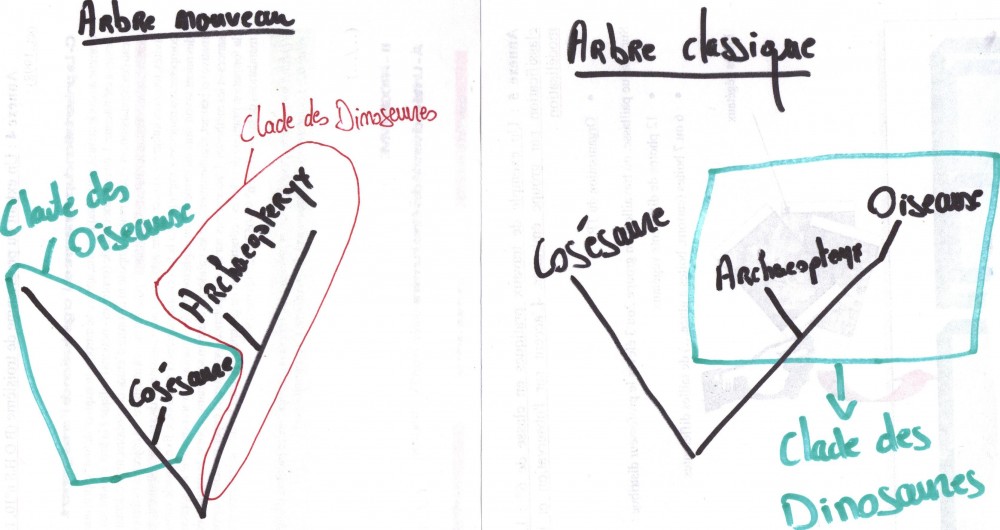 Arbre nouveau
Clade des Dinosaures
Clade des
Oiseaux
Archaeopteryx
Cosésaure
Arbre classique
Cosésaure
Oiseaux
Archaeopteryx
Clade des
Dinosaures